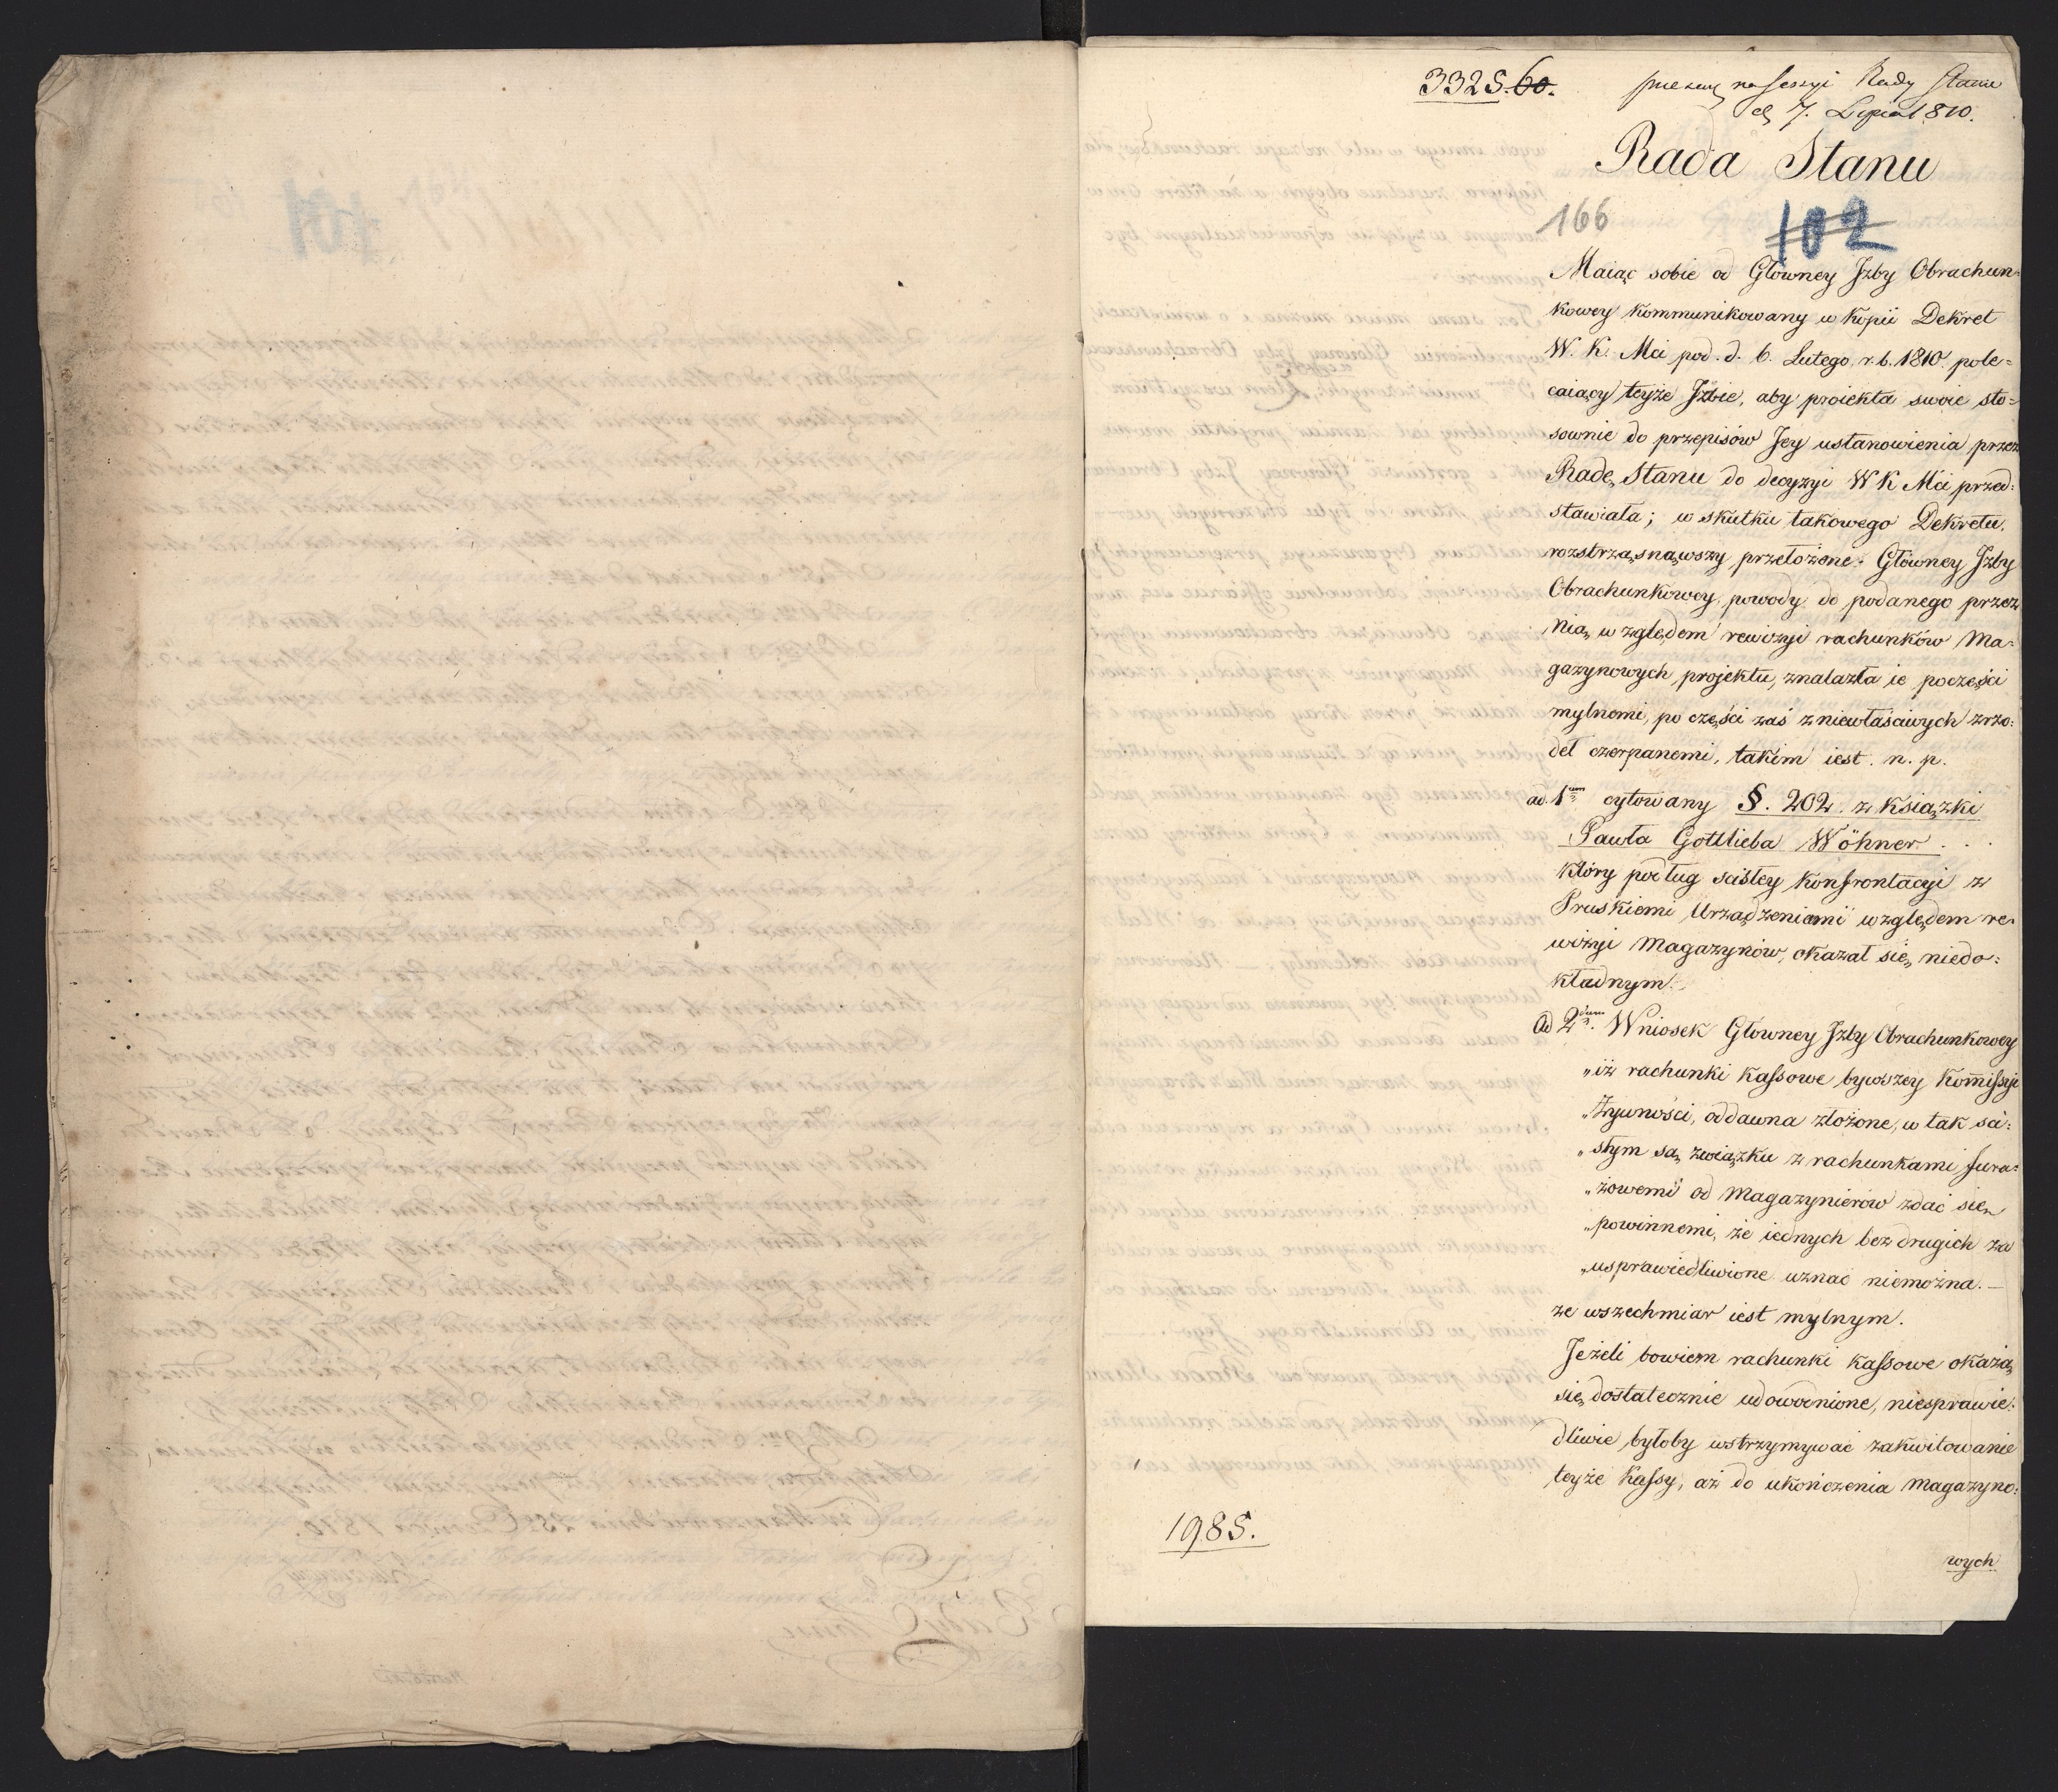 3325. 60.
na Sessyi Rady Stanu
d. 7. Lipca 1810.
Rada Stanu
166
102
Maiąc sobie od Główney Jzby Obrachun=
kowey kommunikowany w kopii Dekret
W. K. Mci pod. d. 6. Lutego, r. b. 1810. pole=
caiący teyże Jzbie, aby proiekta swoie sto=
sownie do przepisów Jey ustanowienia przez
Radę Stanu do decyzyi W K Mci przed=
stawiała; w skutku takowego Dekretu,
rozstrząsnąwszy przełożone Główney Jzby
Obrachunkowey powody do podanego przez
Nią względem rewizyi rachunków Ma=
gazynowych projektu, znalazła ie poczęści
mylnemi, po części zaś z niewłaściwych zrzo=
deł czerpanemi, takim iest. n. p.
ad 1um cytowany §. 202. z książki
Pawła Gottlieba Wöhner . . .
który podług scisłey konfrontacyi z
Pruskiemi Urządzeniami względem re=
wizyi Magazynów, okazał się niedo=
kładnym.
Ad 2dum. Wniosek Główney Jzby Obrachunkowey
„iż rachunki kassowe bywszey Kommissyi
„Żywności, oddawna złożone, w tak sci=
„słym są związku z rachunkami fura=
„żowemi od Magazynierów zdać się
„powinnemi, że iednych bez drugich za
„usprawiedliwione uznać niemożna. —
ze wszechmiar iest mylnym.
Jeżeli bowiem rachunki kassowe okażą
się dostatecznie udowodnione, niesprawie=
dliwie byłoby wstrzymywać zakwitowanie
teyże Kassy, aż do ukończenia magazyno=
1985.
wych